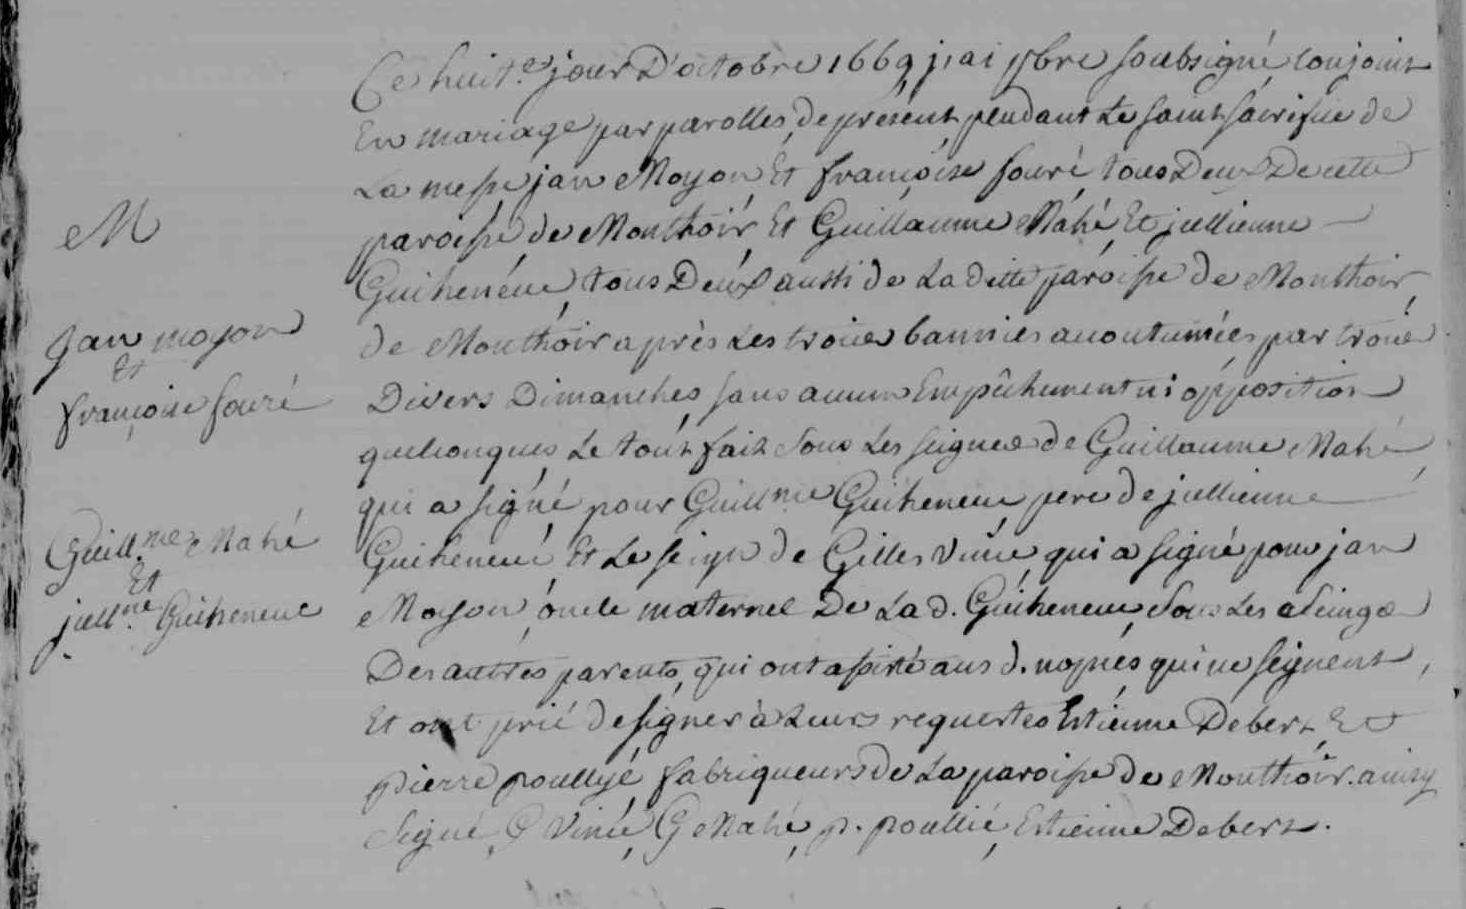 M
Jan moyon
Et
françoise fouré
Guill.me Mahé
Et
jull.ne Guiheneuc
Ce huit.e jour D'octobre 1669 j'ai pbre soubsigné conjoint
En mariage par parolles de présent pendant Le saint sacrifice de
La messe jan Moyon Et françoise fouré tous Deux De cette
paroisse de Monthoir Et Guillaume Mahé Et jullienne
Guiheneuc tous Deux aussi de La ditte paroisse de Monthoir
de Monthoir après Les trois bannies acoutumées par trois
Divers Dimanches sans aucun Empêchement ni opposition
quelconques Le tout fait sous Les seigns de Guillaume Mahé
qui a signé pour Guill.me Guiheneuc pere de jullienne
Guiheneuc Et Le seign de Gilles Vince qui a signé pour jan
Moyon oncle maternel De La d. Guiheneuc sous Les seings
Des autres parents qui ont assisté aus d. nopces qui ne signent,
Et ont prié de signer à Leurs requestes Estienne Debert Et
pierre poullyé fabriqueurs de La paroisse de Monthoir. ainsy
Signé, G Vince, G Mahé, p. poullié, Estienne Debert.